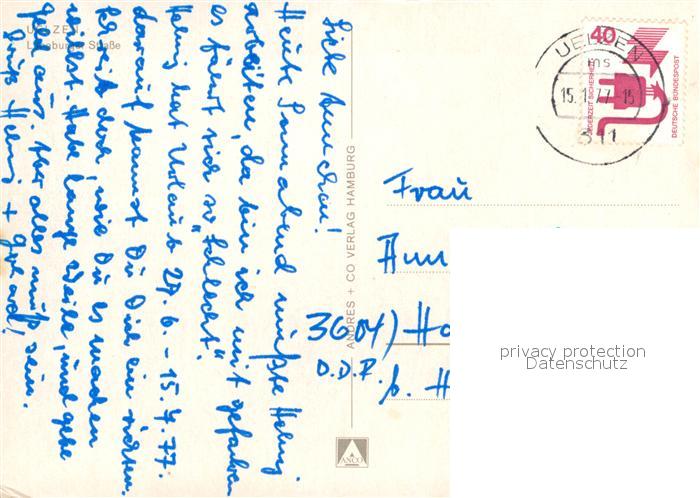 UELZEN
Lüneburger Straße
Liebe Annchen!
Heute Sonnabend mußte Helmi
arbeiten, da bin ich mit gefahren
es fährt sich so "schlecht".
Helmi hat Urlaub 27.6. - 15.7.77.
darauf kannst Du Dich ein richten.
Schreib doch, wie Du es machen
willst. Habe lange Weile, und gehe
gern aus. Aber alles muß sein.
Gruß Helmi + Gerhard!
ANDRES + CO VERLAG HAMBURG
ANCO
UELZEN
ms
15.1.77-15
311
40
JEDERZEIT SICHERHEIT
DEUTSCHE BUNDESPOST
Frau
Ann
3604) Ha
D.D.R.
b. H
privacy protection
Datenschutz